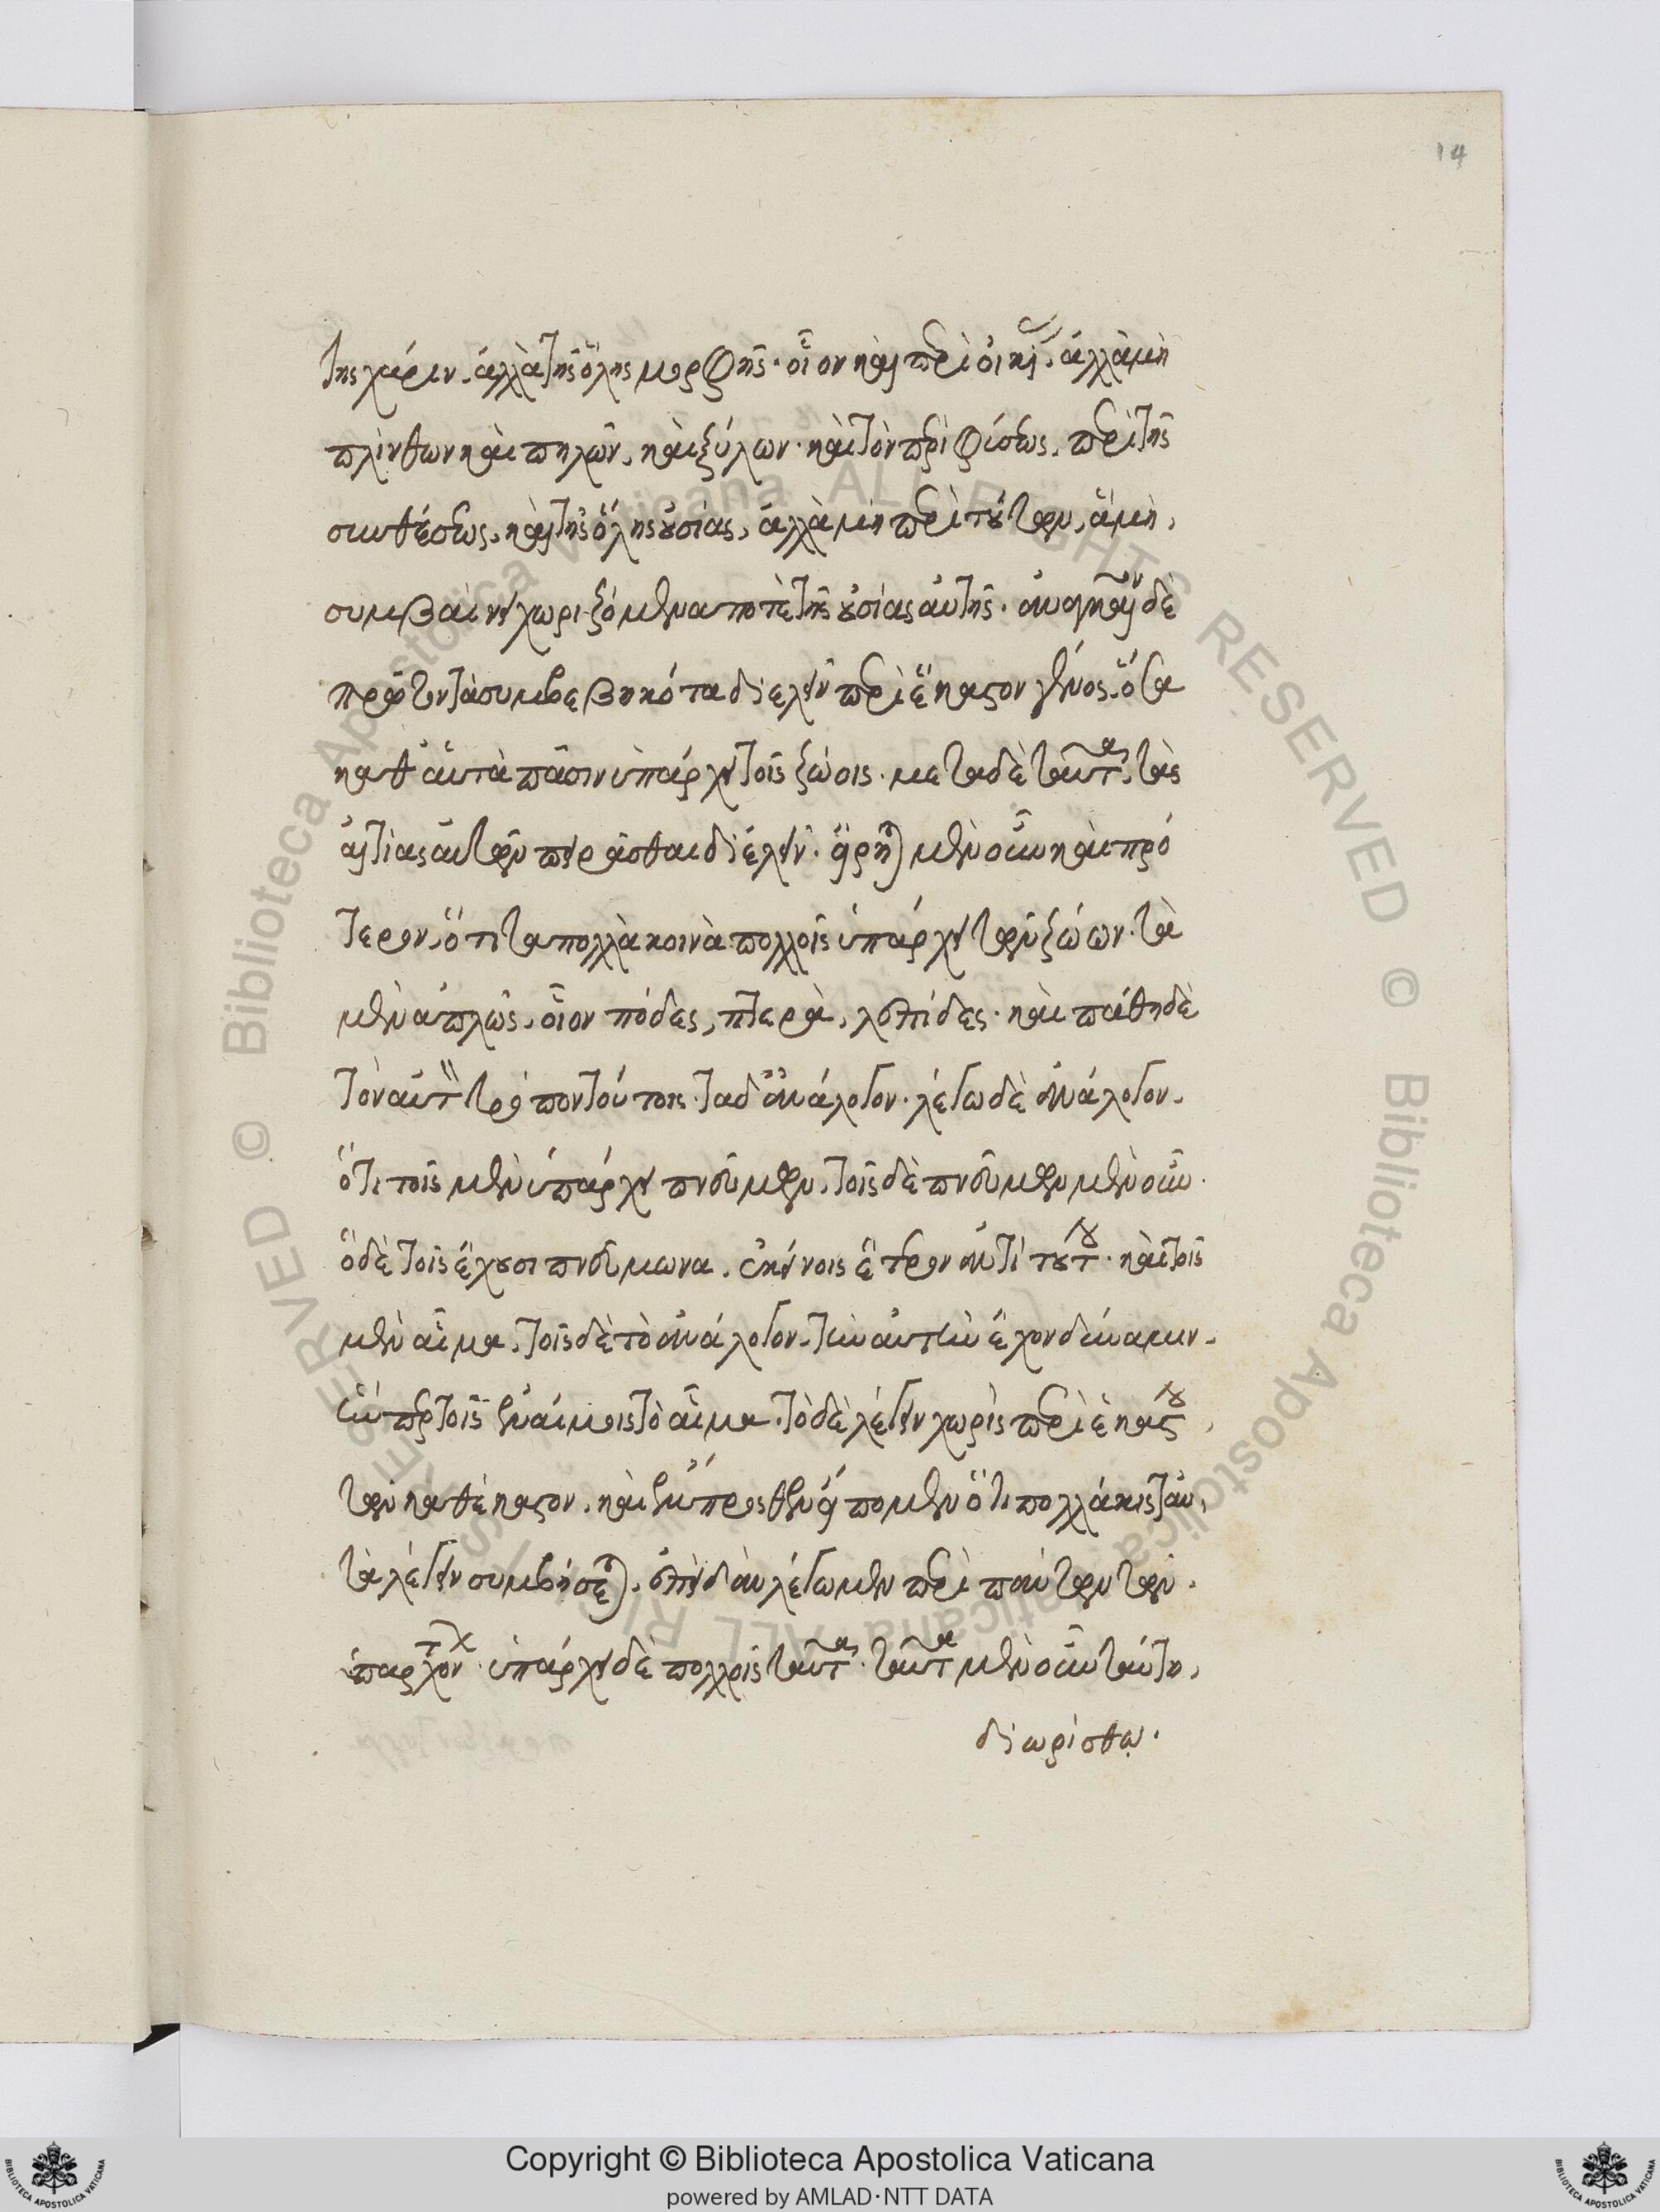 14
της χάριν. ἀλλὰ τῆς ὅλης μορφῆς. οἷον καὶ περὶ οἰκίας. ἀλλὰ μὴ
πλίνθων καὶ πηλοῦ, καὶ ξύλων. καὶ τὸν περὶ φύσεως, περὶ τῆς
συνθέσεως, καὶ τῆς ὅλης οὐσίας, ἀλλὰ μὴ περὶ τούτων, ἃ μὴ,
συμβαίνει χωριζόμενα ποτὲ τῆς οὐσίας αὐτῆς. ἀναγκαῖον δὲ
πρῶτον τὰ συμβεβηκότα διελεῖν περὶ ἕκαστον γένος. ὅσα
καθ' αὑτὰ πᾶσιν ὑπάρχει τοῖς ζώοις. μετα δὲ ταῦτα, τὰς
αἰτίας αὐτῶν πειρᾶσθαι διελεῖν. εἴρηται μὲν οὖν καὶ πρό
τερον, ὅτι τα πολλὰ κοινὰ πολλοῖς ὑπάρχει τῶν ζώων. τὰ
μὲν ἁπλῶς, οἷον πόδες, πτερὰ, λεπίδες. καὶ πάθη δὲ
τὸν αὐτὸν τρόπον τούτοις. τα δ' ἀνάλογον. λέγω δὲ ἀνάλογον.
ὅτι τοῖς μὲν ὑπάρχει πνεύμων. τοῖς δὲ πνεύμων μὲν οὔ.
ὃ δὲ τοῖς ἔχουσι πνεύμωνα. ἐκείνοις ἕτερον ἀντὶ τούτου. καὶ τοῖς
μὲν αἷμα, τοῖς δὲ τὸ ἀνάλογον. τὴν αὐτὴν ἔχον δύναμιν.
ἥνπερ τοῖς ἐναίμοις τὸ αἷμα. τὸ δὲ λέγειν χωρὶς περὶ ἑκάστου,
τῶν καθέκαστον. καὶ ἔμπροσθεν εἴπομεν ὅτι πολλάκις ταυ,
τὰ λέγειν συμβήσεται. ἐπειδὰν λέγωμεν περὶ πάντων τῶν.
ὑπαρχόντων. ὑπάρχει δὲ πολλοῖς ταῦτα. ταῦτα μὲν οὖν ταύτη,
διωρίσθω.
Copyright © Biblioteca Apostolica Vaticana
powered by AMLAD·NTT DATA